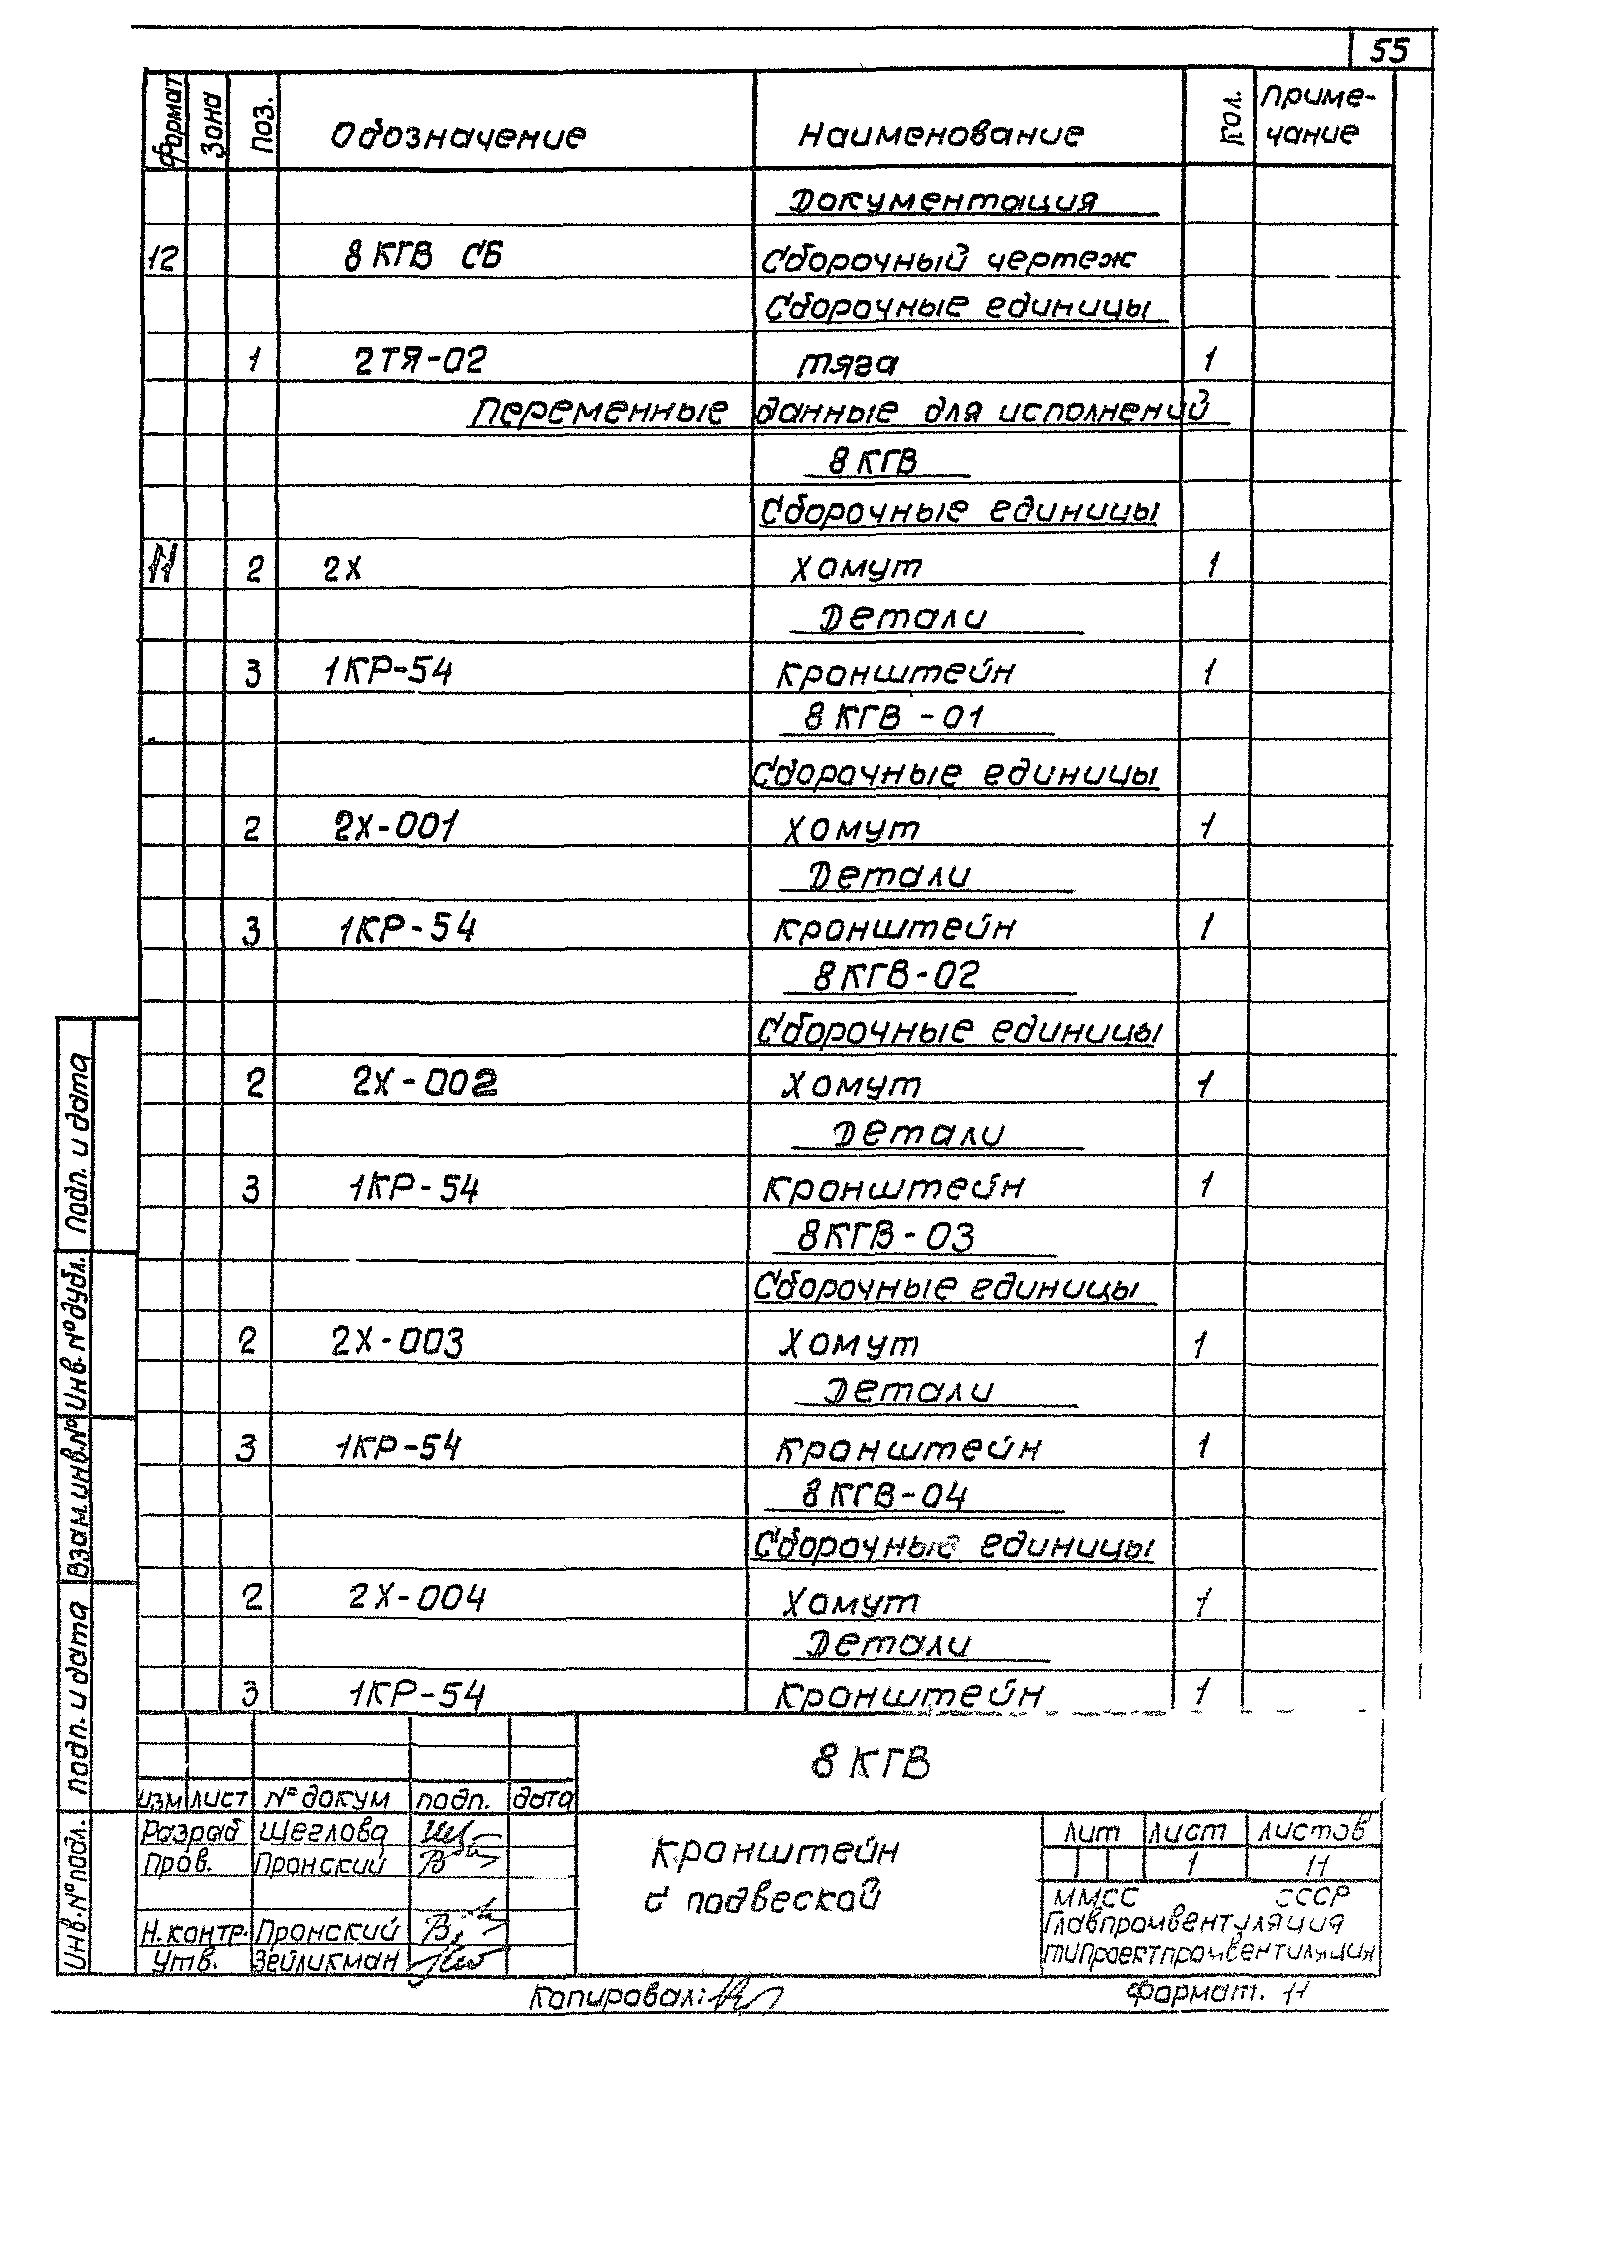 55
Формат Зона Поз. Обозначение Наименование Кол. Приме-
чание
Документация
12 8 КГВ СБ Сборочный чертеж
Сборочные единицы
1 2ТЯ-02 тяга 1
Переменные данные для исполнений
8 КГВ
Сборочные единицы
11 2 2Х Хомут 1
Детали
3 1КР-54 кронштейн 1
8 КГВ -01
Сборочные единицы
2 2Х-001 Хомут 1
Детали
3 1КР-54 кронштейн 1
8КГВ-02
Сборочные единицы
2 2Х-002 Хомут 1
Детали
3 1КР-54 кронштейн 1
8КГВ-03
Сборочные единицы
2 2Х-003 Хомут 1
Детали
3 1КР-54 кронштейн 1
8 КГВ-04
Сборочные единицы
2 2Х-004 Хомут 1
Детали
3 1КР-54 кронштейн 1
Подп. и дата
Инв. № дубл.
Взам. инв. №
подп. и дата
Инв. № подл.
8 КГВ
изм лист № докум подп. дата
Разраб Щеглова
Пров. Пронский
Н.контр. Пронский
Утв. Зейликман
кронштейн
с подвеской
лит лист листов
1 11
ММСС СССР
Главпромвентуляция
Копировал:
Формат. 11